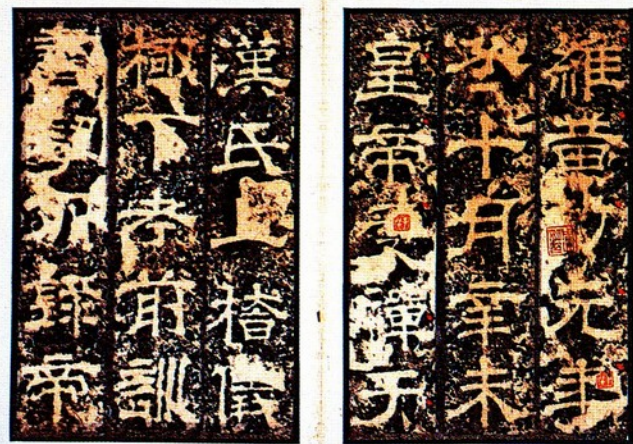 維黃初元年
冬十月辛未
皇帝受禪于
漢氏上稽儀
極下考前訓
書契所錄帝